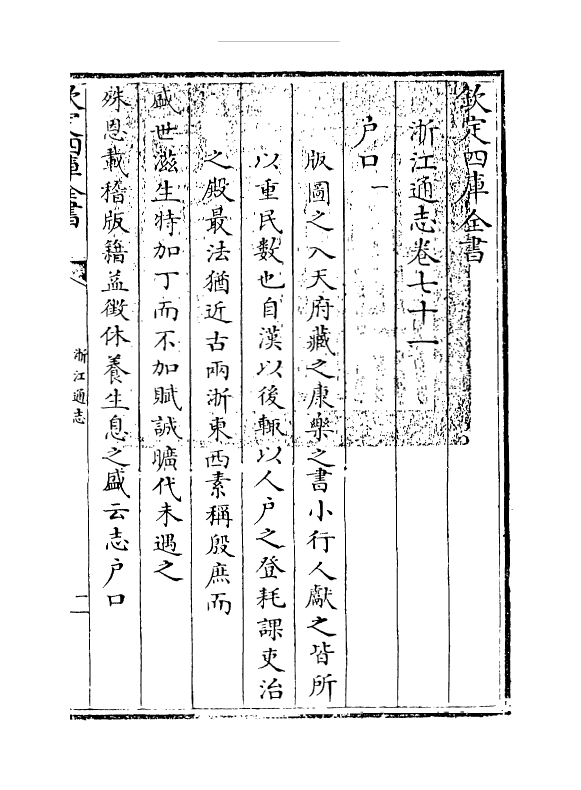 欽定四庫全書
浙江通志卷七十一
户口一
版圖之入天府藏之康樂之書小行人獻之皆所
以重民數也自漢以後輒以人户之登耗課吏治
之殿最法猶近古兩浙東西素稱殷庶而
盛世滋生特加丁而不加賦誠曠代未遇之
殊恩載稽版籍益徵休養生息之盛云志户口
欽定四庫全書
浙江通志
二